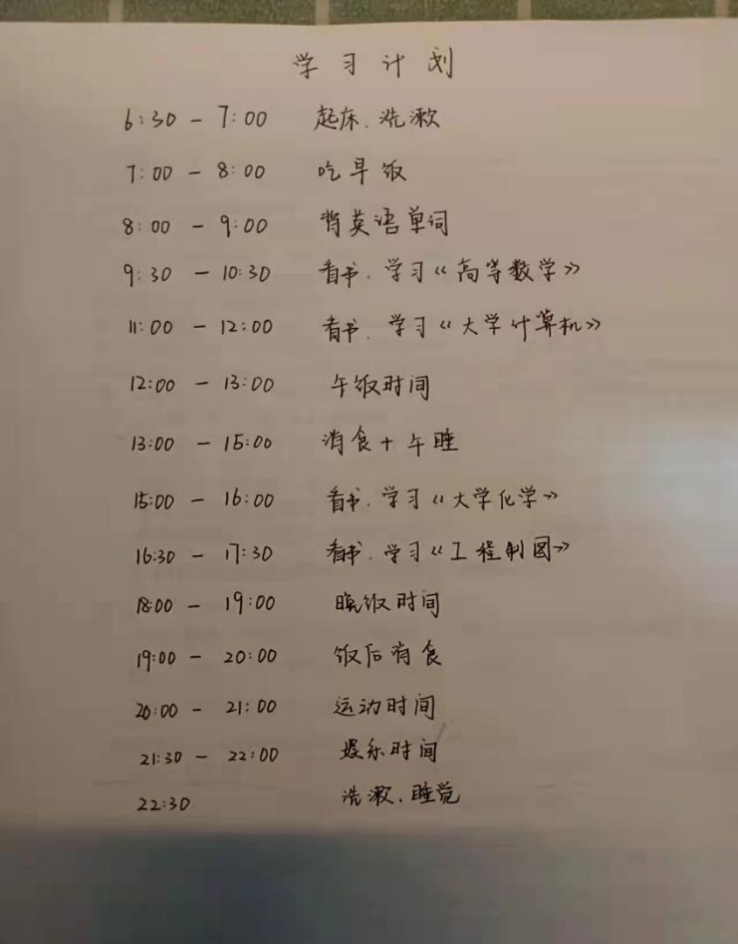 学习计划
6:30 - 7:00 起床、洗漱
7:00 - 8:00 吃早饭
8:00 - 9:00 背英语单词
9:30 - 10:30 看书、学习《高等数学》
11:00 - 12:00 看书、学习《大学计算机》
12:00 - 13:00 午饭时间
13:00 - 15:00 消食+午睡
15:00 - 16:00 看书、学习《大学化学》
16:30 - 17:30 看书、学习《工程制图》
18:00 - 19:00 晚饭时间
19:00 - 20:00 饭后消食
20:00 - 21:00 运动时间
21:30 - 22:00 娱乐时间
22:30 洗漱、睡觉